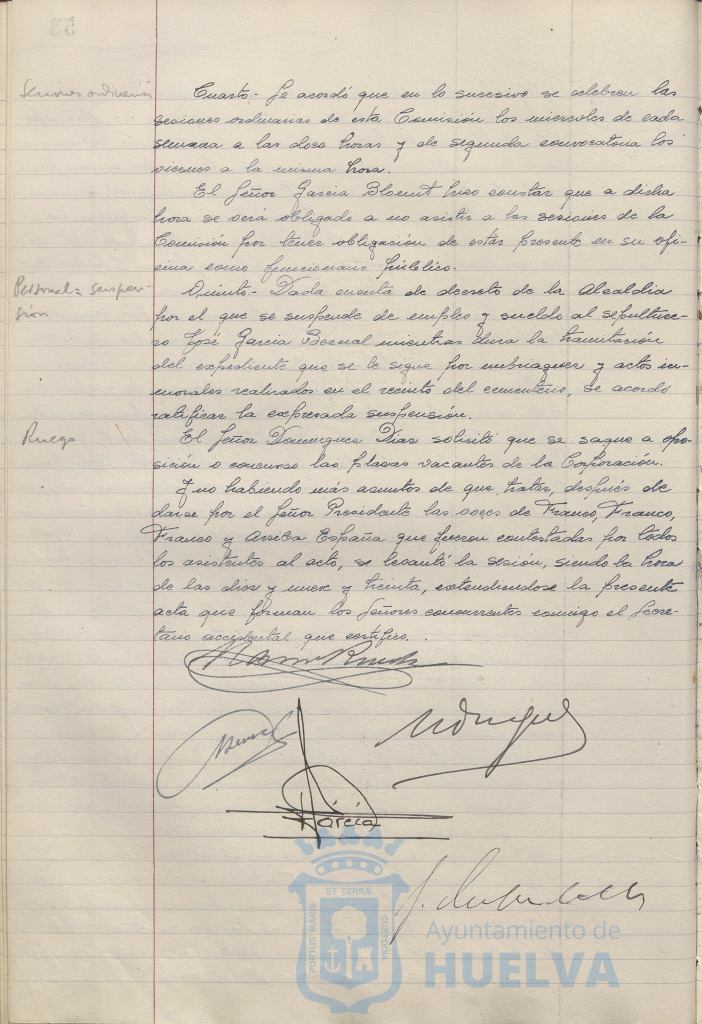 Sesiones ordinarias
Cuarto.- Se acordó que en lo sucesivo se celebren las
sesiones ordinarias de esta Comisión los miercoles de cada
semana a las doce horas y de segunda convocatoria los
viernes a la misma hora.
El Señor Garcia hizo constar que a dicha
hora se verá obligado a no asistir a las sesiones de la
Comisión por tener obligación de estar presente en su ofi-
cina como funcionario público.
Personal = suspen-
sión
Quinto.- Dada cuenta de decreto de la Alcaldia
por el que se suspende de empleo y sueldo al sepulture-
ro José Garcia Bernal mientras dura la tramitación
del expediente que se le sigue por embriaguez y actos in-
morales realizados en el recinto del cementerio, se acordó
ratificar la expresada suspensión.
Ruego
El Señor Dominguez Diaz solicitó que se saque a opo-
sición o concurso las plazas vacantes de la Corporación.
Y no habiendo más asuntos de que tratar, después de
darse por el Señor Presidente las voces de Franco, Franco,
Franco y Arriba España que fueron contestadas por todos
los asistentes al acto, se levantó la sesión, siendo la hora
de las diez y nueve y treinta, extendiendose la presente
acta que firman los Señores concurrentes conmigo el Secre-
tario accidental que certifico.
García
PORTUS MARIS ET TERRÆ CUSTODIA
Ayuntamiento de
HUELVA